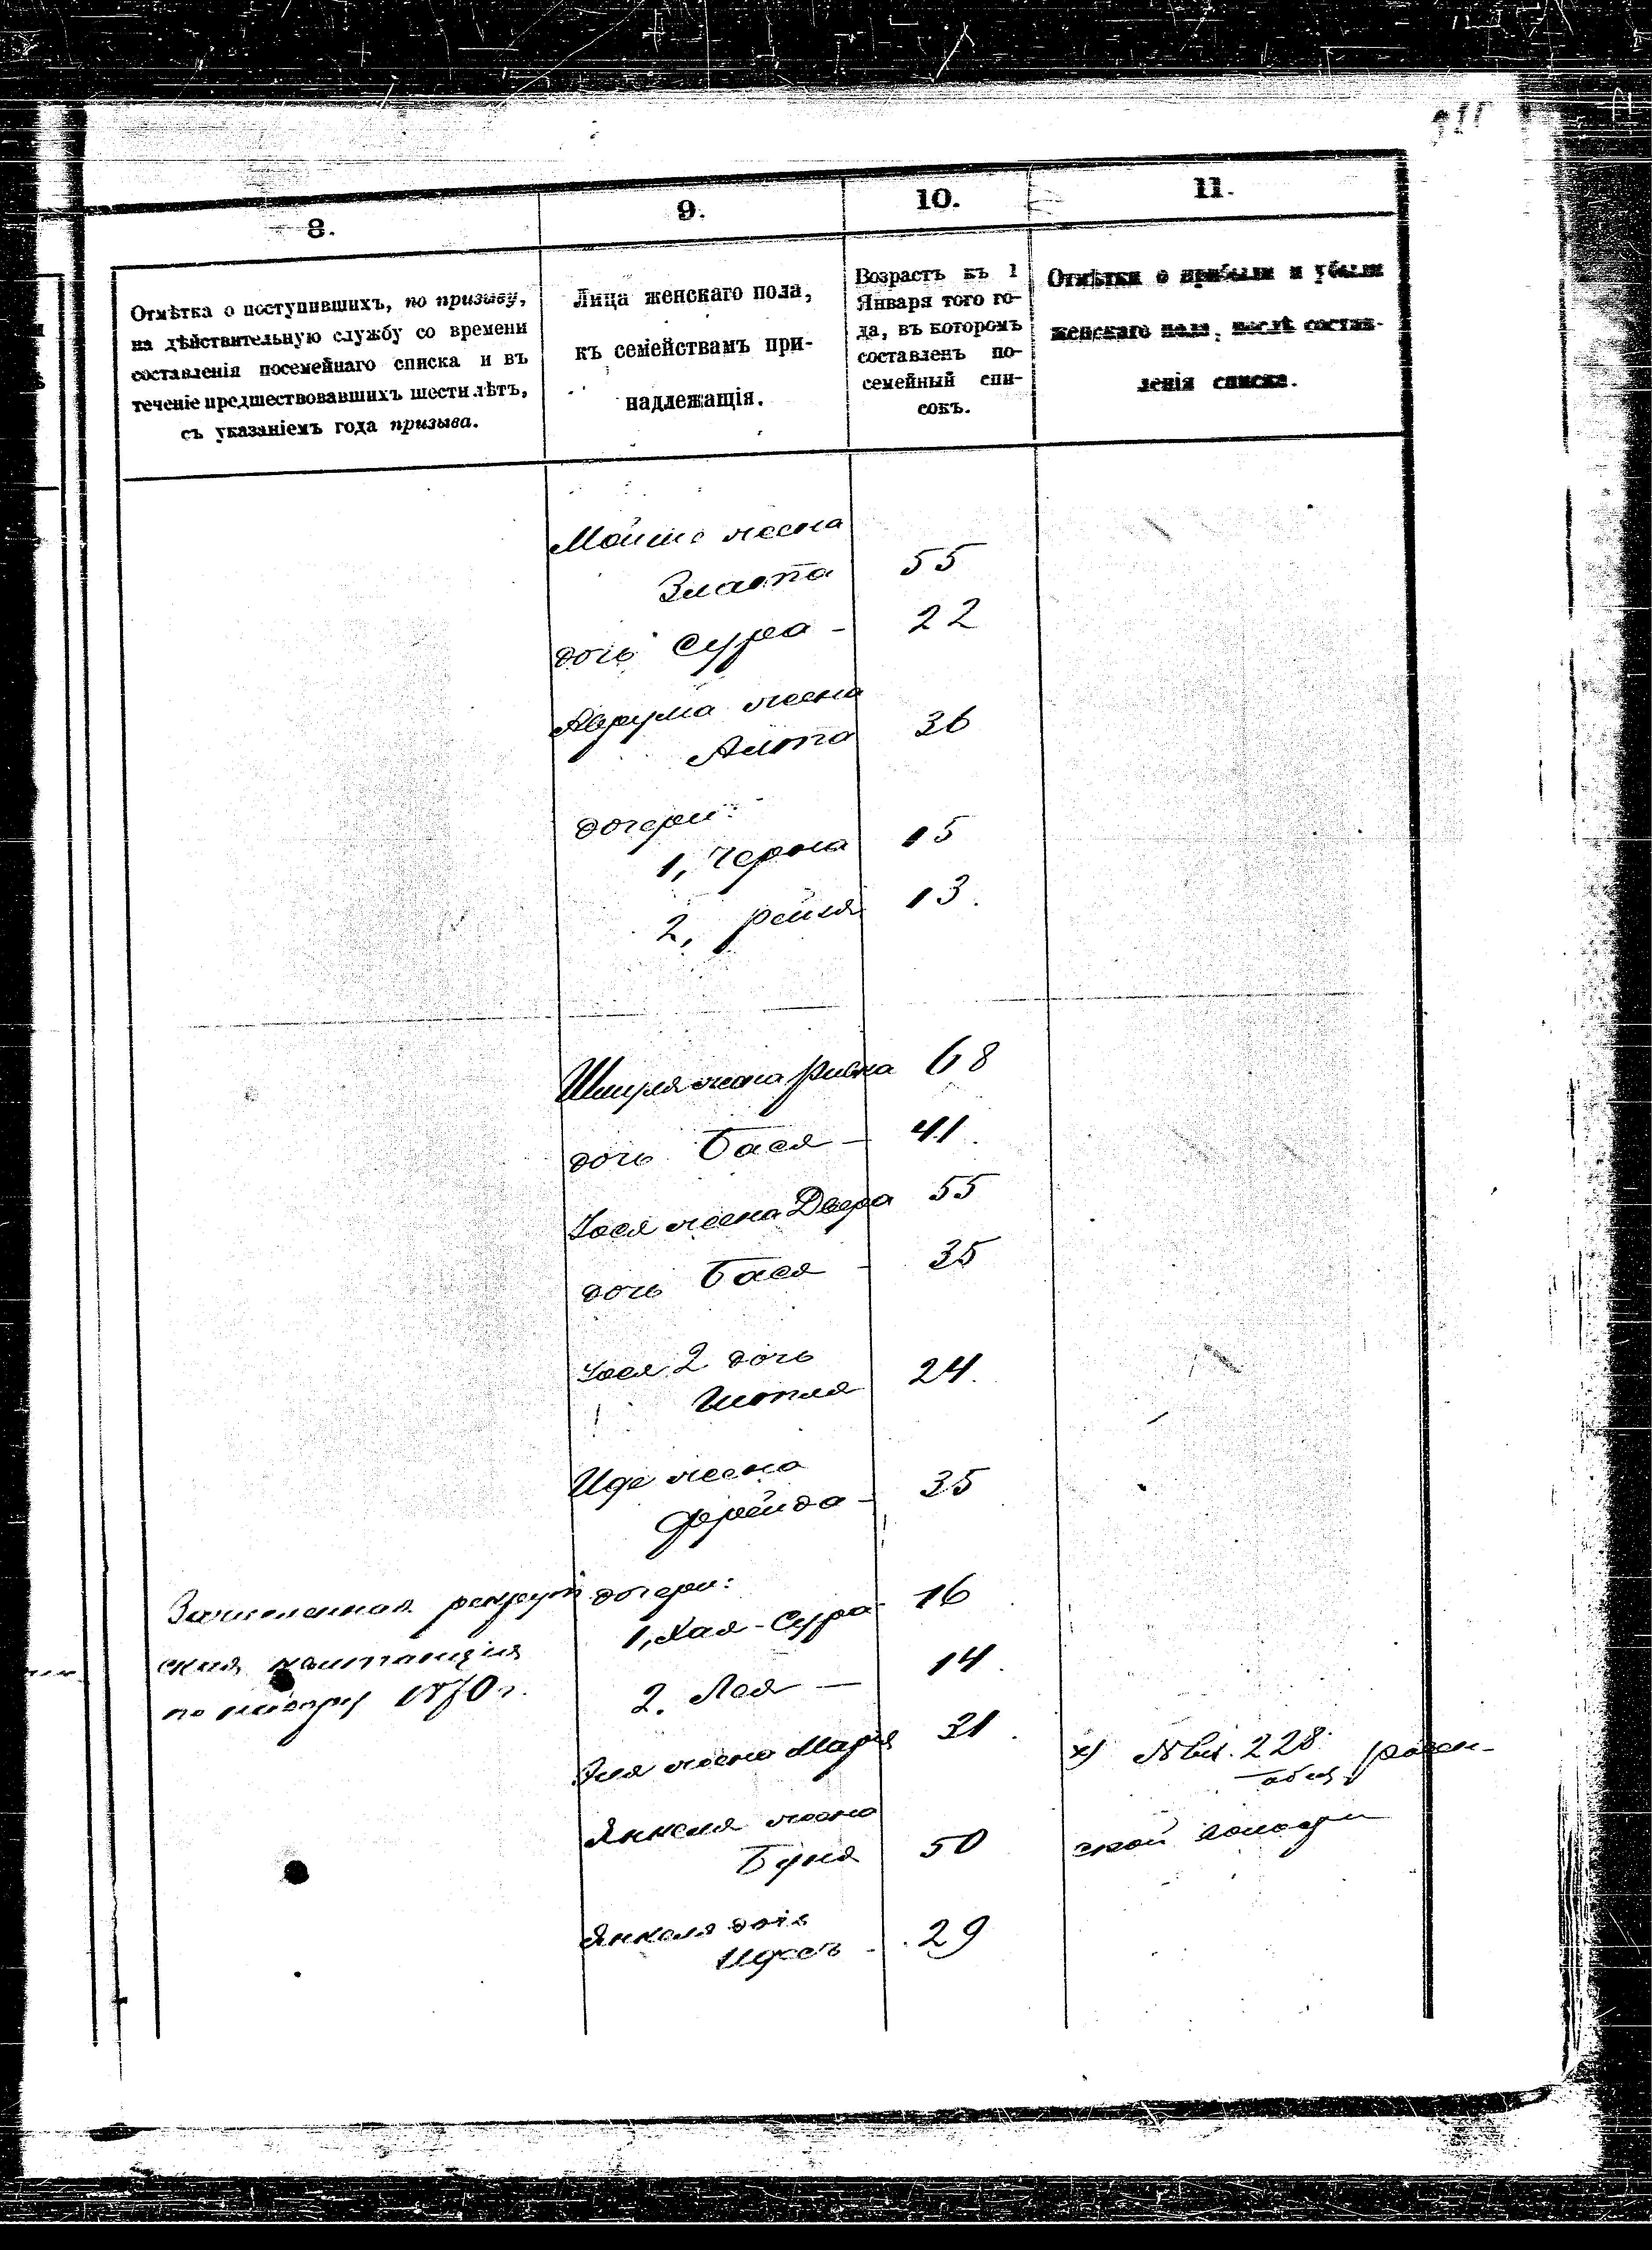 8.
9.
10.
11.
Отмѣтка о поступившихъ, по призыву,
на дѣйствительную службу со времени
составленія посемейнаго списка и въ
теченіе предшествовавшихъ шести лѣтъ,
съ указаніемъ года призыва.
Лица женскаго пола,
къ семействамъ при-
надлежащія.
Возрастъ къ 1
Января того го-
да, въ которомъ
составленъ по-
семейный спи-
сокъ.
Отмѣтки о прибыли и убыли
женскаго пола, послѣ состав-
ленія списка.
жена
Злата 55
дочь Сура - 22
Аврума жена
Алта 36
дочери:
1, Черна 15
2, Рейля 13.
Шмуля жена Ривка 68
дочь Бася - 41
Іося жена Двера 55
дочь Бася - 35
Іося 2 дочь
24.
жена
Фрейда - 35
Зачтенная рекрут
дочери:
ская квитанція
1, Хая-Сура 16
по набору 1870 г.
2. Лея - 14.
Эля жена Марія 31.
х) 228.
Янкеля жена
Буня 50
ской волости
Янкеля дочь
Идесъ - 29